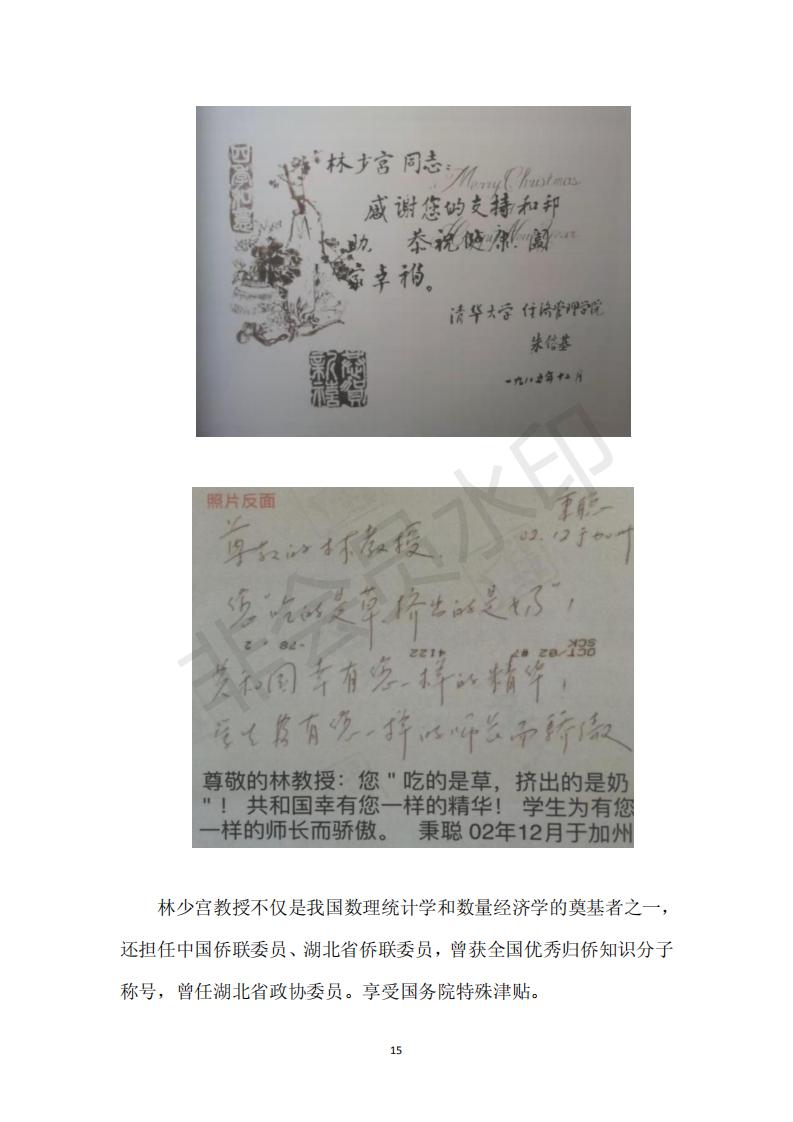 四季如意
林少宫 同志:
Merry Christmas
感谢您的支持和邦
助, 恭祝健康、阖
家幸福。
清华大学 经济管理学院
朱镕基
一九八五年十二月
恭贺
新禧
照片反面
秉聪
02.12于加州
尊敬的林教授,
您“吃的是草,挤出的是奶”!
OCT/02 02 #7 4122 -78 · 2
SCK
共和国幸有您一样的精华!
学生为有您一样的师长而骄傲
尊敬的林教授:您＂吃的是草，挤出的是奶
＂！ 共和国幸有您一样的精华！ 学生为有您
一样的师长而骄傲。 秉聪 02年12月于加州
非会员水印
林少宫教授不仅是我国数理统计学和数量经济学的奠基者之一，
还担任中国侨联委员、湖北省侨联委员，曾获全国优秀归侨知识分子
称号，曾任湖北省政协委员。享受国务院特殊津贴。
15